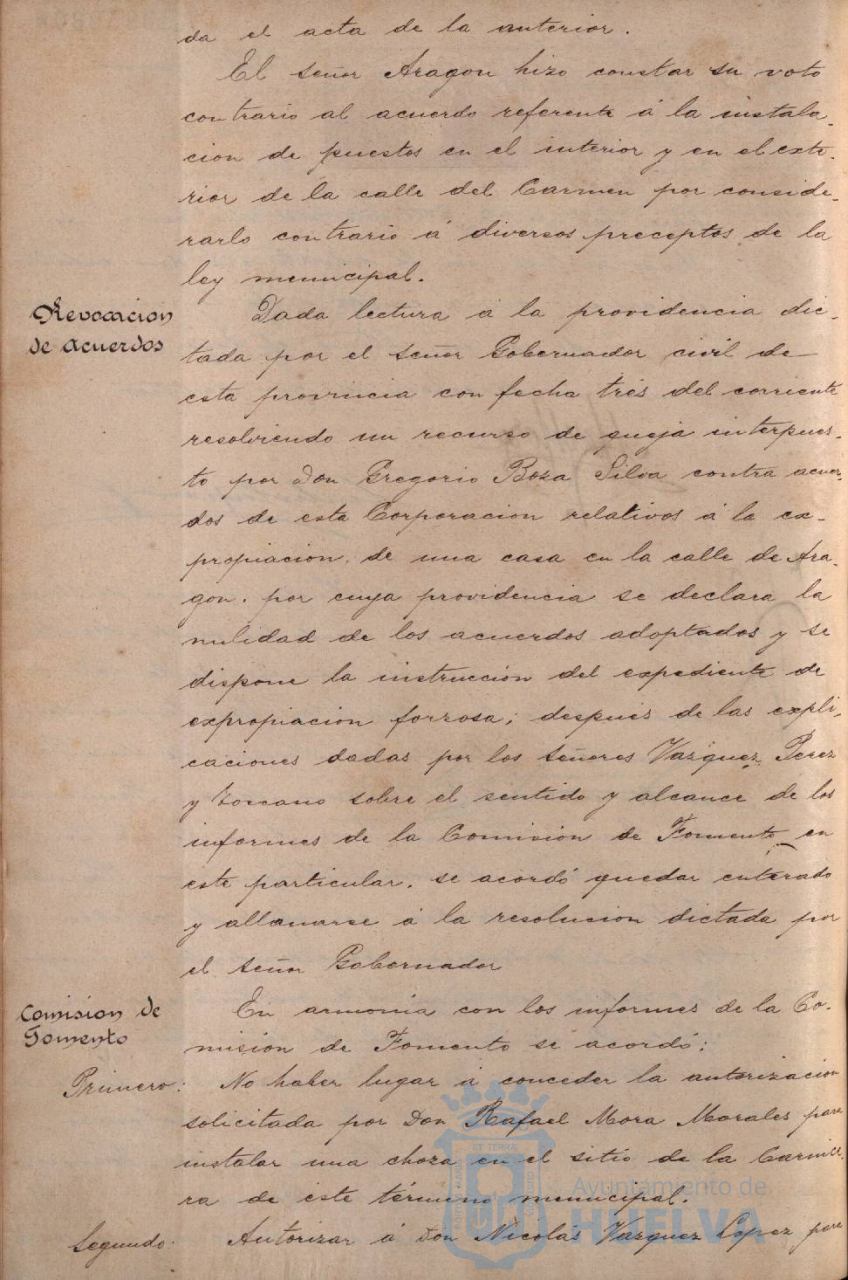 da el acta de la anterior.
El señor Aragon hizo constar su voto
contrario al acuerdo referente á la instala-
cion de puestos en el interior y en el exte-
rior de la calle del Carmen por conside-
rarlo contrario á diversos preceptos de la
ley municipal.
Revocacion
de acuerdos
Dada lectura á la providencia dic-
tada por el señor Gobernador civil de
esta provincia con fecha trés del corriente
resolviendo un recurso de queja interpues-
to por Don Gregorio Boza Silva contra acuer-
dos de esta Corporacion relativos á la ex-
propiacion de una casa en la calle de Ara-
gon. por cuya providencia se declara la
nulidad de los acuerdos adoptados y se
dispone la instrucción del expediente de
expropiacion forzosa; después de las expli-
caciones dadas por los señores Vazquez Perez
y Toscano sobre el sentido y alcance de los
informes de la Comision de Fomento en
este particular. se acordó quedar enterado
y allanarse á la resolucion dictada por
el señor Gobernador
Comision de
Fomento
En armonia con los informes de la Co-
mision de Fomento se acordó:
Primero: No haber lugar á conceder la autorizacion
solicitada por Don Rafael Mora Morales para
instalar una choza en el sitio de la Carnice-
ra de este término municipal.
Segundo. Autorizar á Don Nicolás Vazquez Lopez para
Ayuntamiento de
HUELVA